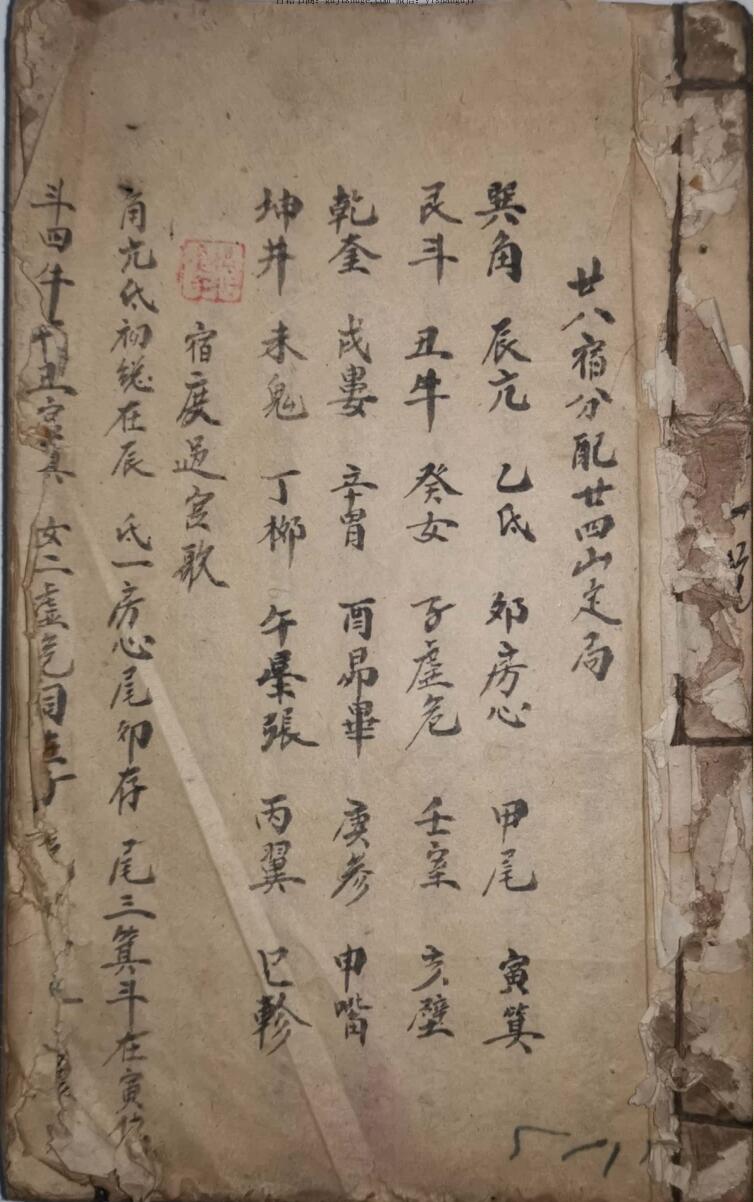 廿八宿分配廿四山定局
巽角 辰亢 乙氐 卯房心 甲尾 寅箕
艮斗 丑牛 癸女 子虚危 壬室 亥壁
乾奎 戌婁 辛胃 酉昴畢 庚参 申嘴
坤井 未鬼 丁柳 午星張 丙翼 巳軫
宿度过宫歌
角亢氐初總在辰 氐一房心尾卯存 尾三箕斗在寅
斗四牛 丑宫 女二虚危同在子